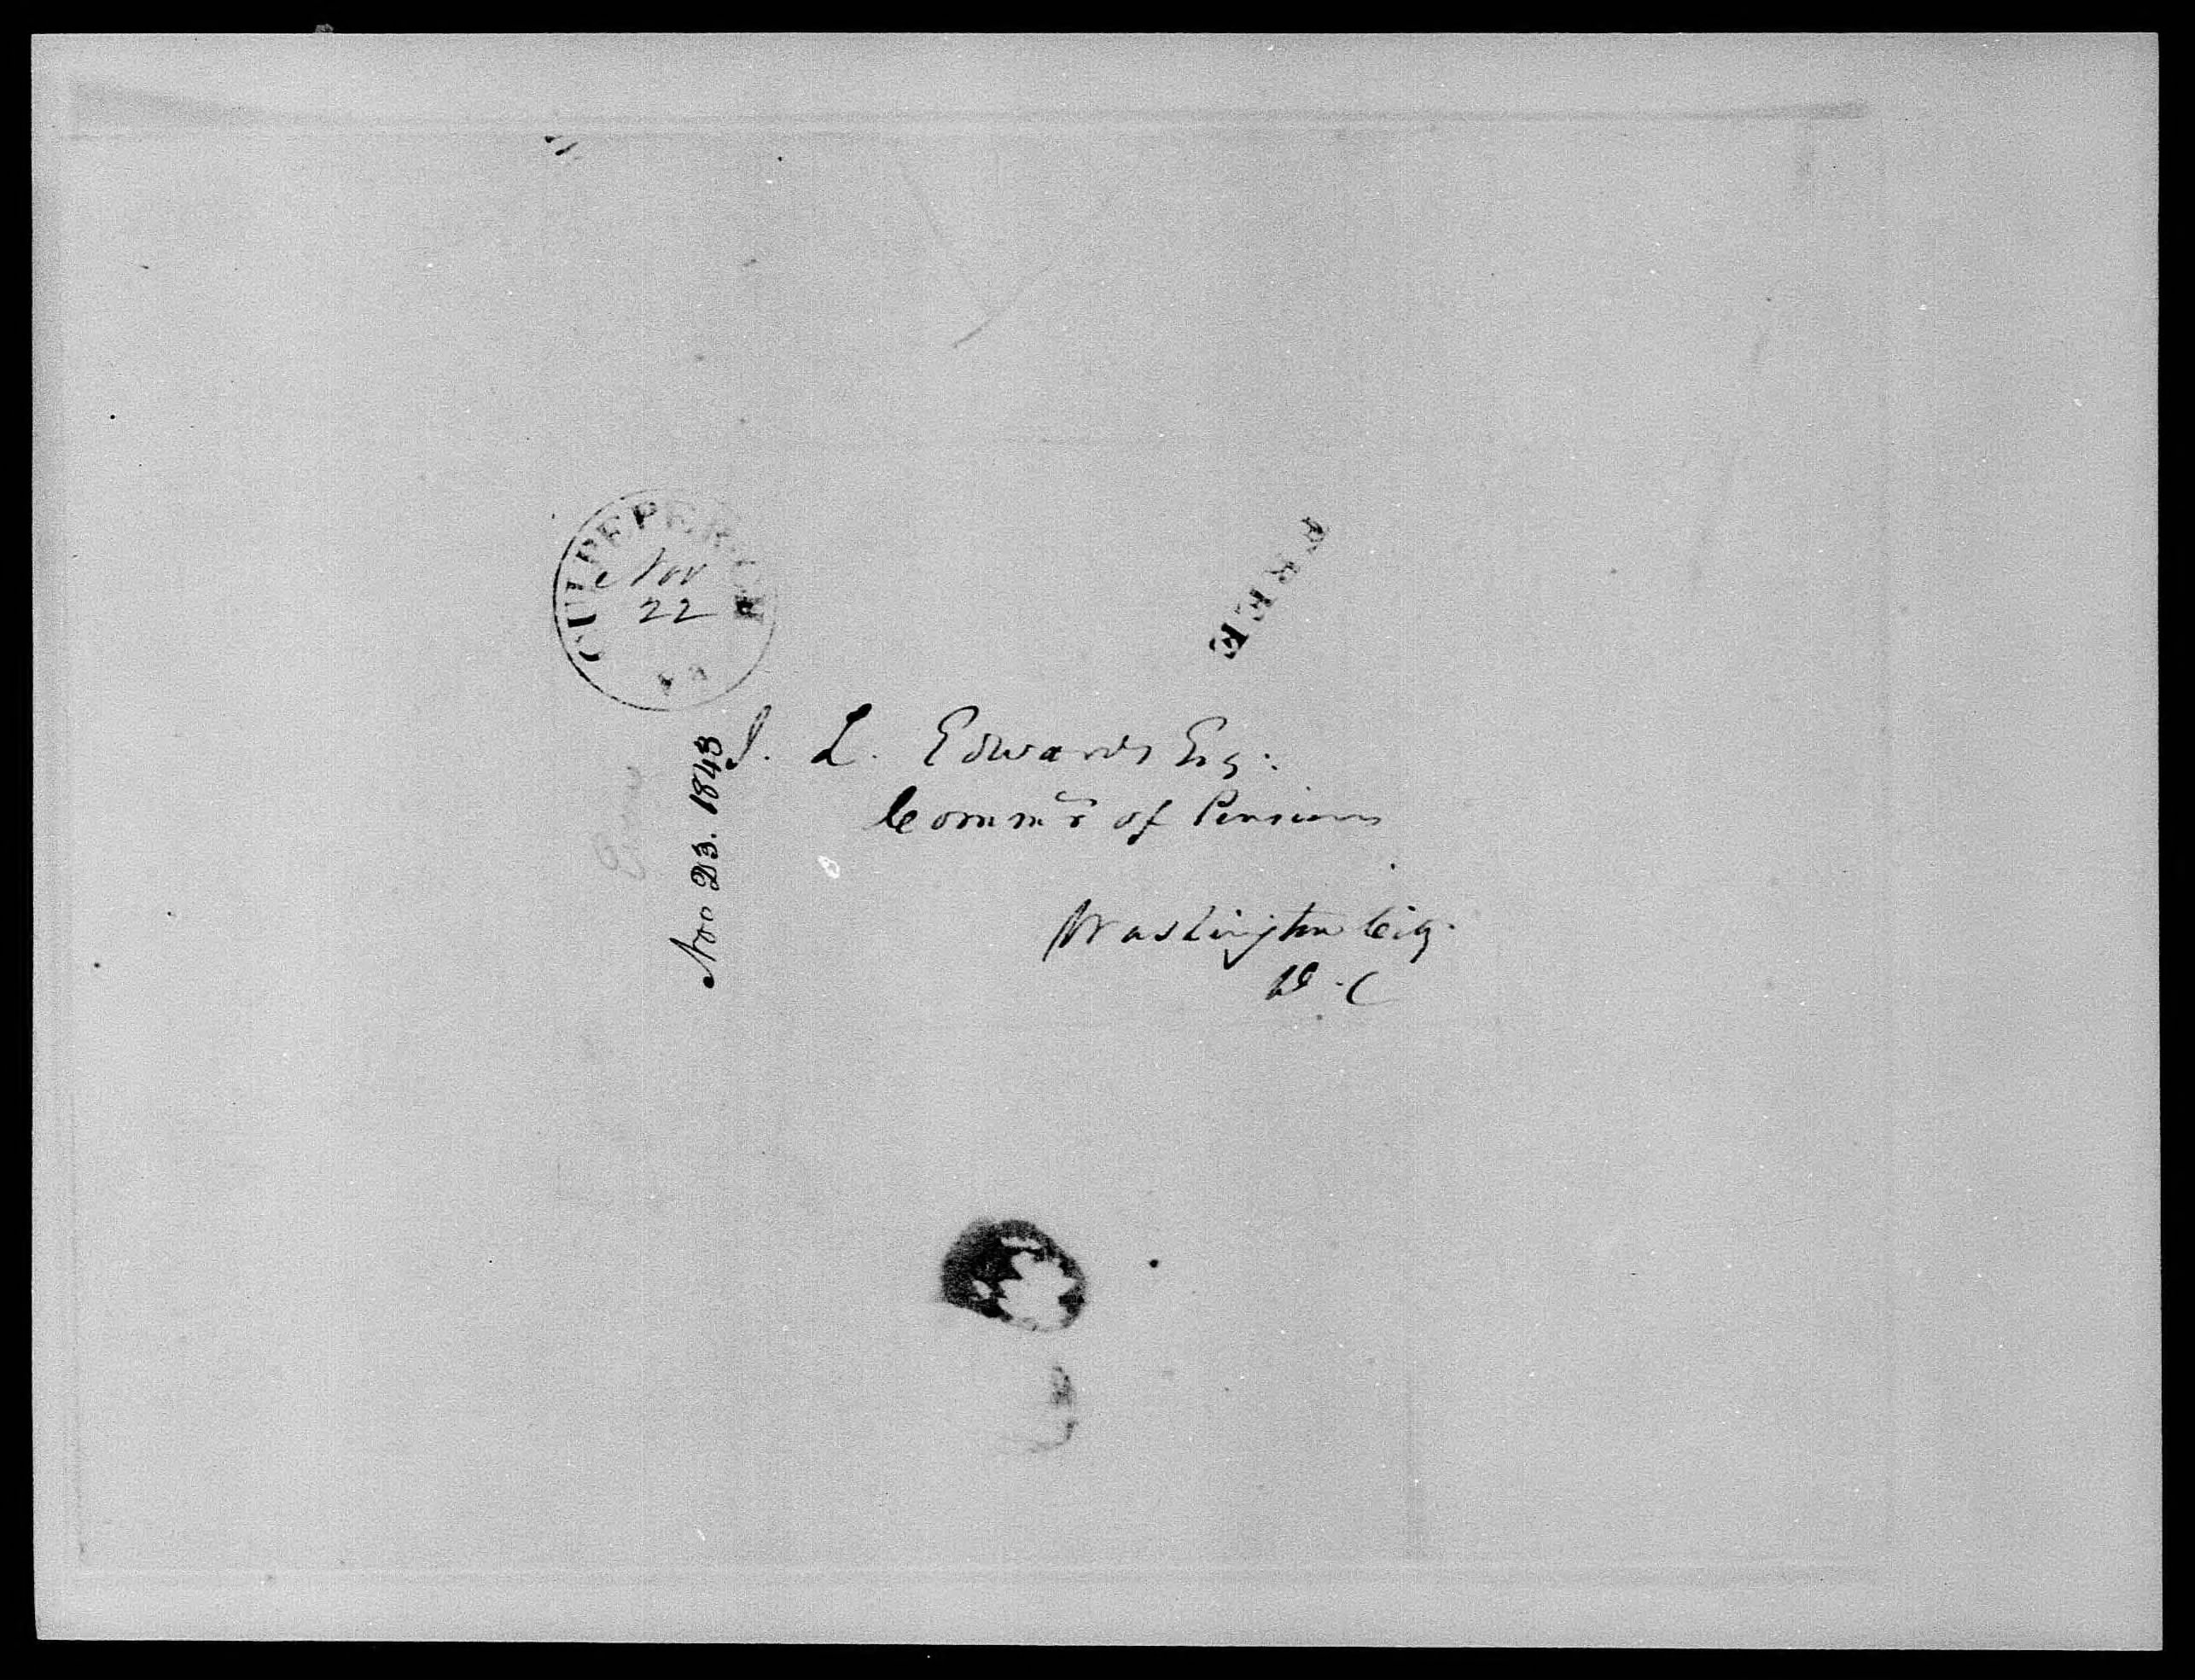 CULPEPER C.H.
Nov
22
VA
FREE
J. L. Edwards Esq:
Comm^r of Pensions
Washington City.
D. C
Nov 23. 1843